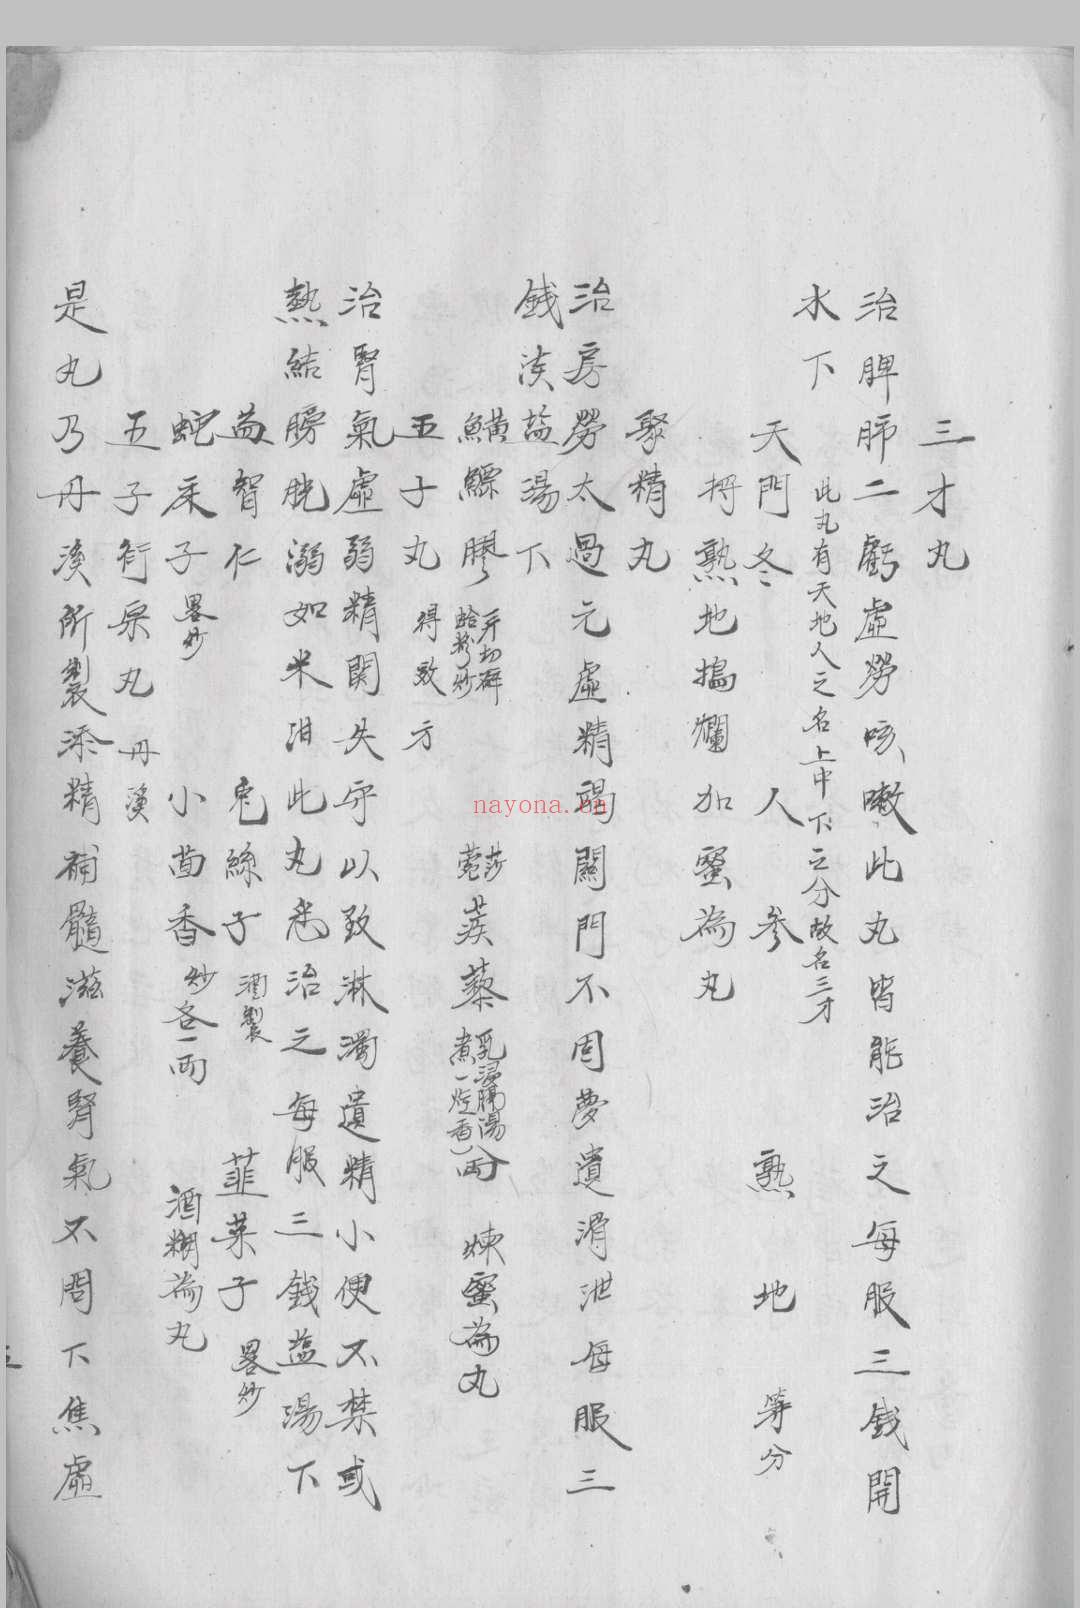 三才丸
治脾肺二虧虛勞咳嗽此丸皆能治之每服三錢開
水下
此丸有天地人之名上中下之分故名三才
天門冬 人參 熟地 等分
將熟地搗爛加蜜為丸
聚精丸
治房勞太過元虛精竭關門不固夢遺滑泄每服三
錢淡盐湯下
鱑鰾膠 弄切碎蛤粉炒 莎苑蒺藜 乳浸隔湯煮一炷香 八兩 煉蜜為丸
五子丸 得效方
治腎氣虛弱精関失守以致淋濁遺精小便不禁或
熱結膀胱溺如米泔此丸悉治之每服三錢盐湯下
益智仁 兔絲子 酒製 韮菜子 畧炒
蛇床子 畧炒 小茴香 炒各一両 酒糊為丸
五子衍宗丸 丹溪
是丸乃丹溪所製添精補髓滋養腎氣不問下焦虛
五
nayona.cn